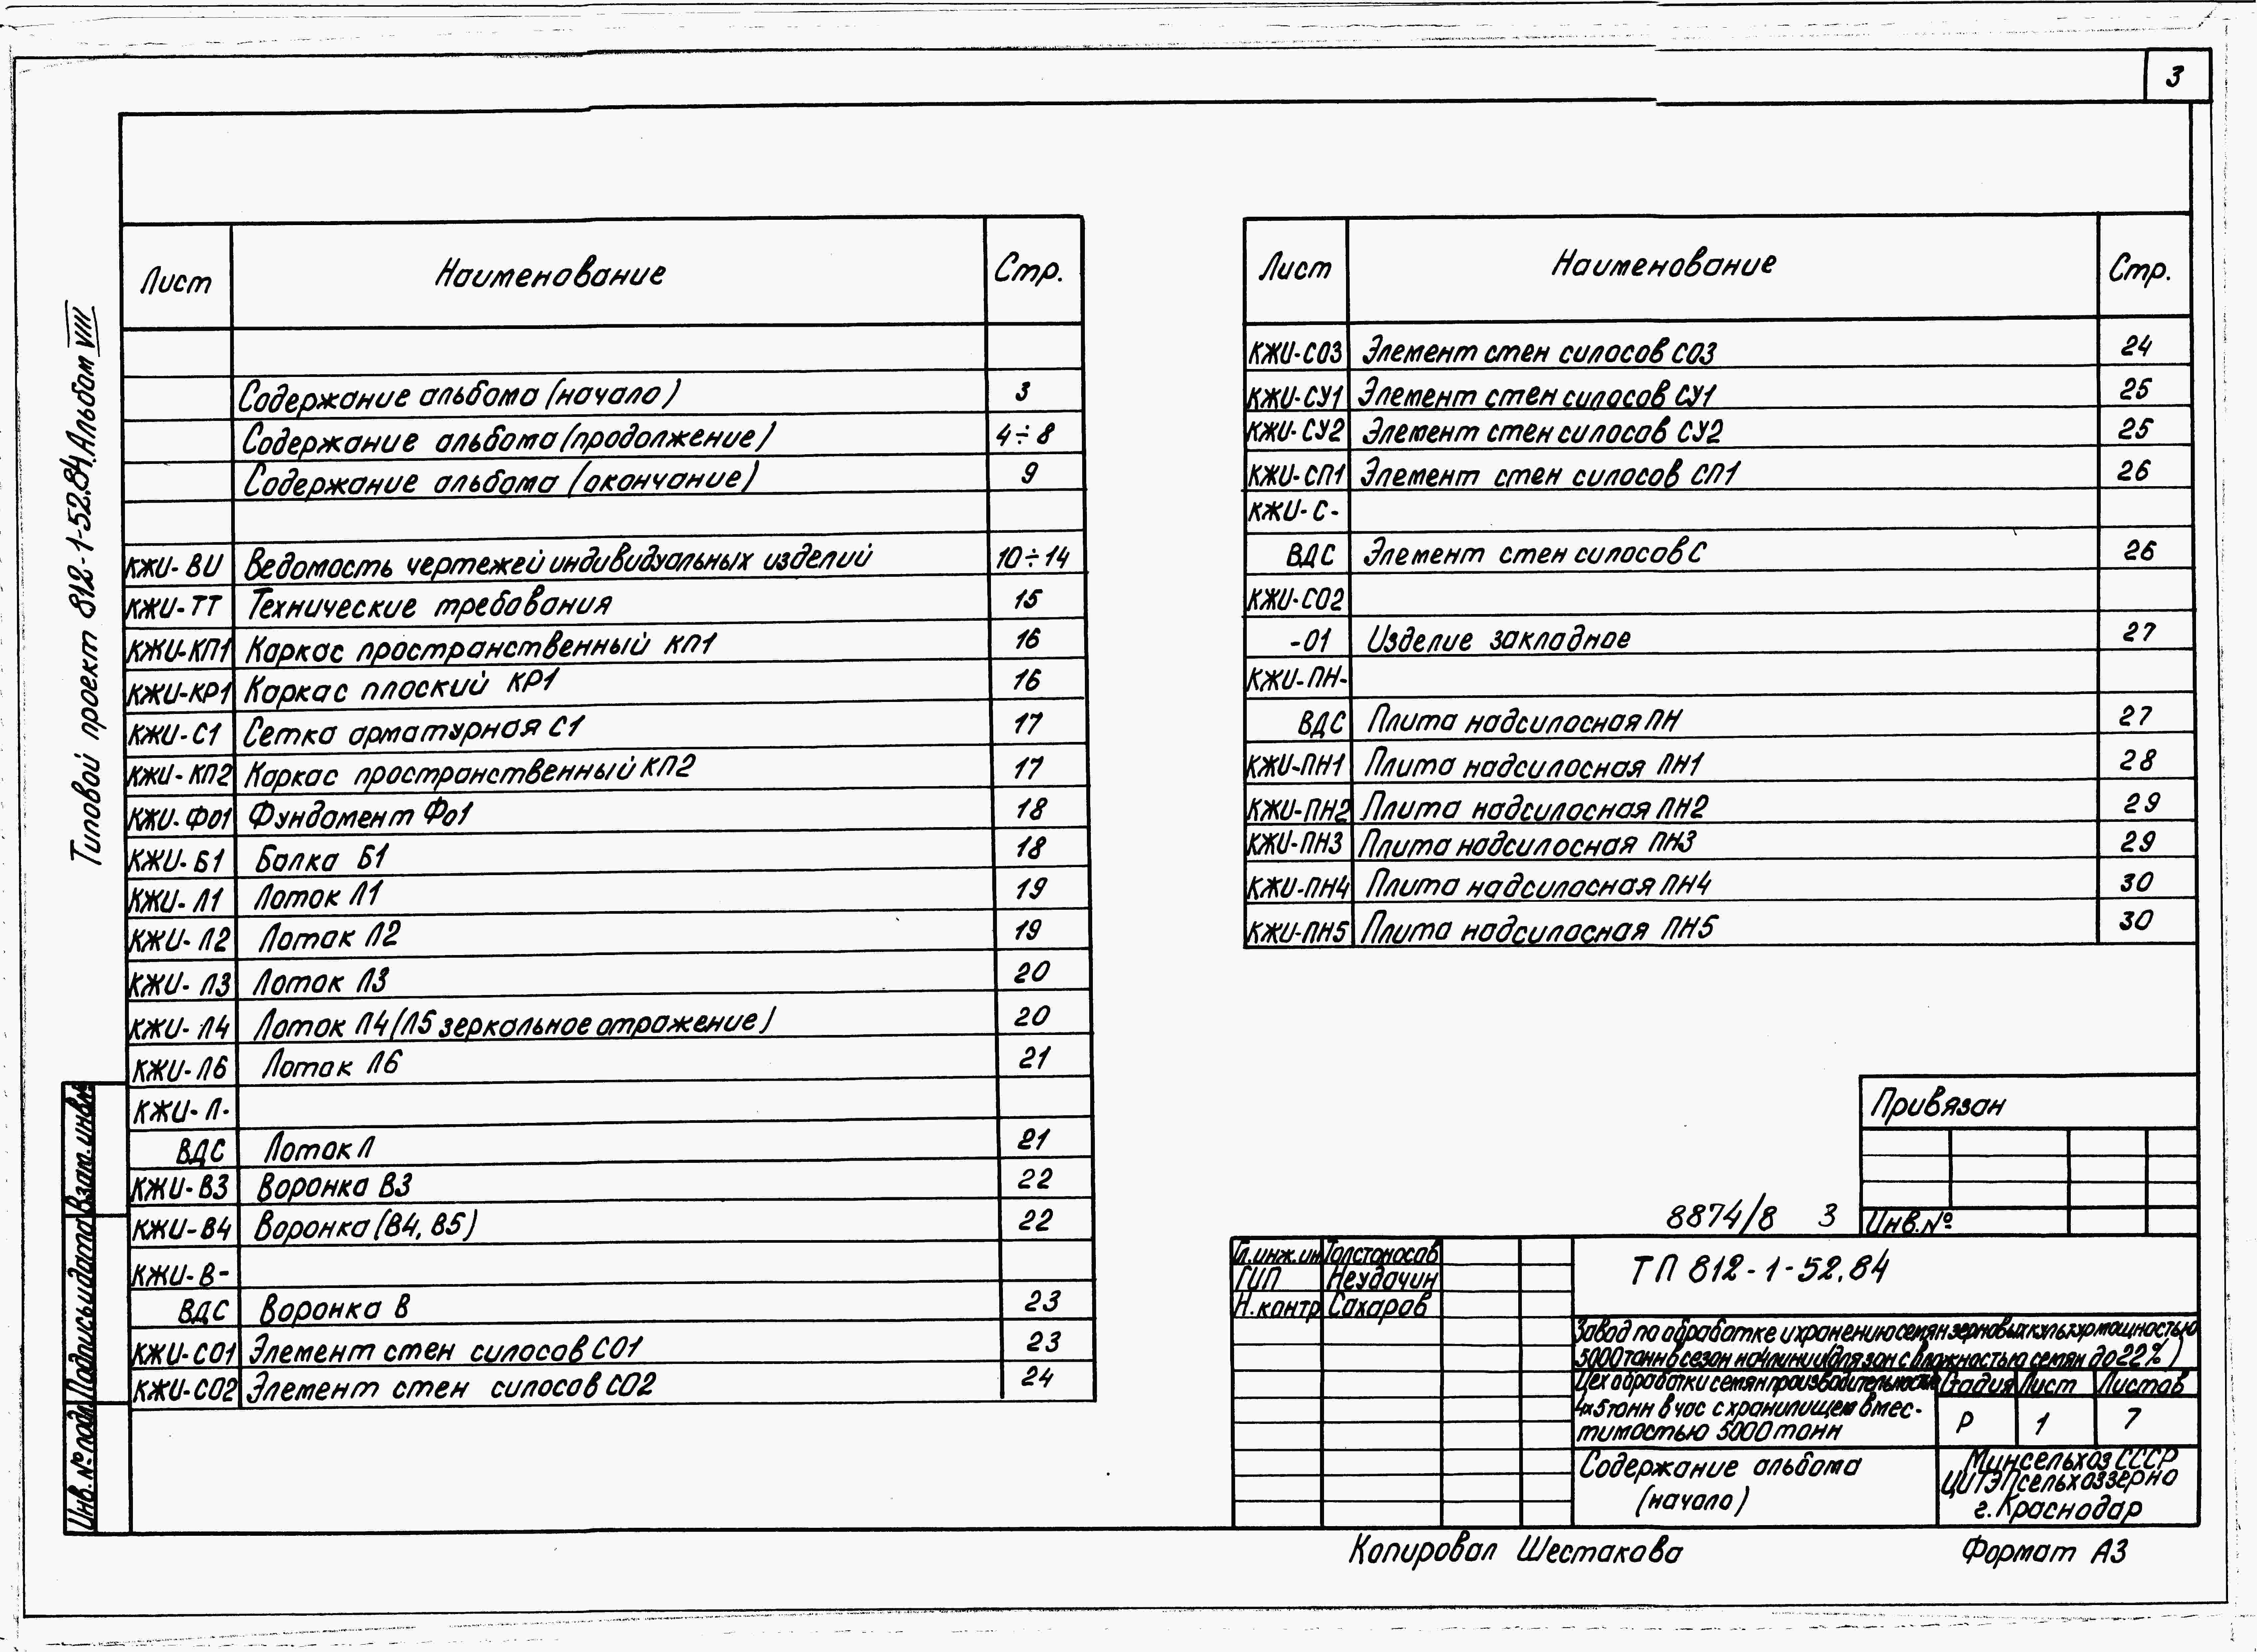 3
Типовой проект 812-1-52.84. Альбом VIII
Лист Наименование Стр.
Содержание альбома (начало) 3
Содержание альбома (продолжение) 4÷8
Содержание альбома (окончание) 9
КЖИ-ВИ Ведомость чертежей индивидуальных изделий 10÷14
КЖИ-ТТ Технические требования 15
КЖИ-КП1 Каркас пространственный КП1 16
КЖИ-КР1 Каркас плоский КР1 16
КЖИ-С1 Сетка арматурная С1 17
КЖИ-КП2 Каркас пространственный КП2 17
КЖИ-Фо1 Фундамент Фо1 18
КЖИ-Б1 Балка Б1 18
КЖИ-Л1 Лоток Л1 19
КЖИ-Л2 Лоток Л2 19
КЖИ-Л3 Лоток Л3 20
КЖИ-Л4 Лоток Л4 (Л5 зеркальное отражение) 20
КЖИ-Л6 Лоток Л6 21
КЖИ-Л-
ВДС Лоток Л 21
КЖИ-В3 Воронка В3 22
КЖИ-В4 Воронка (В4, В5) 22
КЖИ-В-
ВДС Воронка В 23
КЖИ-СО1 Элемент стен силосов СО1 23
КЖИ-СО2 Элемент стен силосов СО2 24
Лист Наименование Стр.
КЖИ-СО3 Элемент стен силосов СО3 24
КЖИ-СУ1 Элемент стен силосов СУ1 25
КЖИ-СУ2 Элемент стен силосов СУ2 25
КЖИ-СП1 Элемент стен силосов СП1 26
КЖИ-С-
ВДС Элемент стен силосов С 26
КЖИ-СО2
-01 Изделие закладное 27
КЖИ-ПН-
ВДС Плита надсилосная ПН 27
КЖИ-ПН1 Плита надсилосная ПН1 28
КЖИ-ПН2 Плита надсилосная ПН2 29
КЖИ-ПН3 Плита надсилосная ПН3 29
КЖИ-ПН4 Плита надсилосная ПН4 30
КЖИ-ПН5 Плита надсилосная ПН5 30
Привязан
Инв.№
8874/8 3
Гл.инж.ин Толстоносов
ГИП Неудачин
Н.контр Сахаров
ТП 812-1-52.84
Завод по обработке и хранению семян зерновых культур мощностью
5000 тонн в сезон на 4 линии (для зон с влажностью семян до 22%)
Цех обработки семян производительностью
4х5 тонн в час с хранилищем вмес-
тимостью 5000 тонн
Стадия Лист Листов
Р 1 7
Содержание альбома
(начало)
Минсельхоз СССР
ЦИТЭПсельхоззерно
г. Краснодар
Взам. инв.№
Подпись и дата
Инв. № подл
Копировал Шестакова
Формат А3